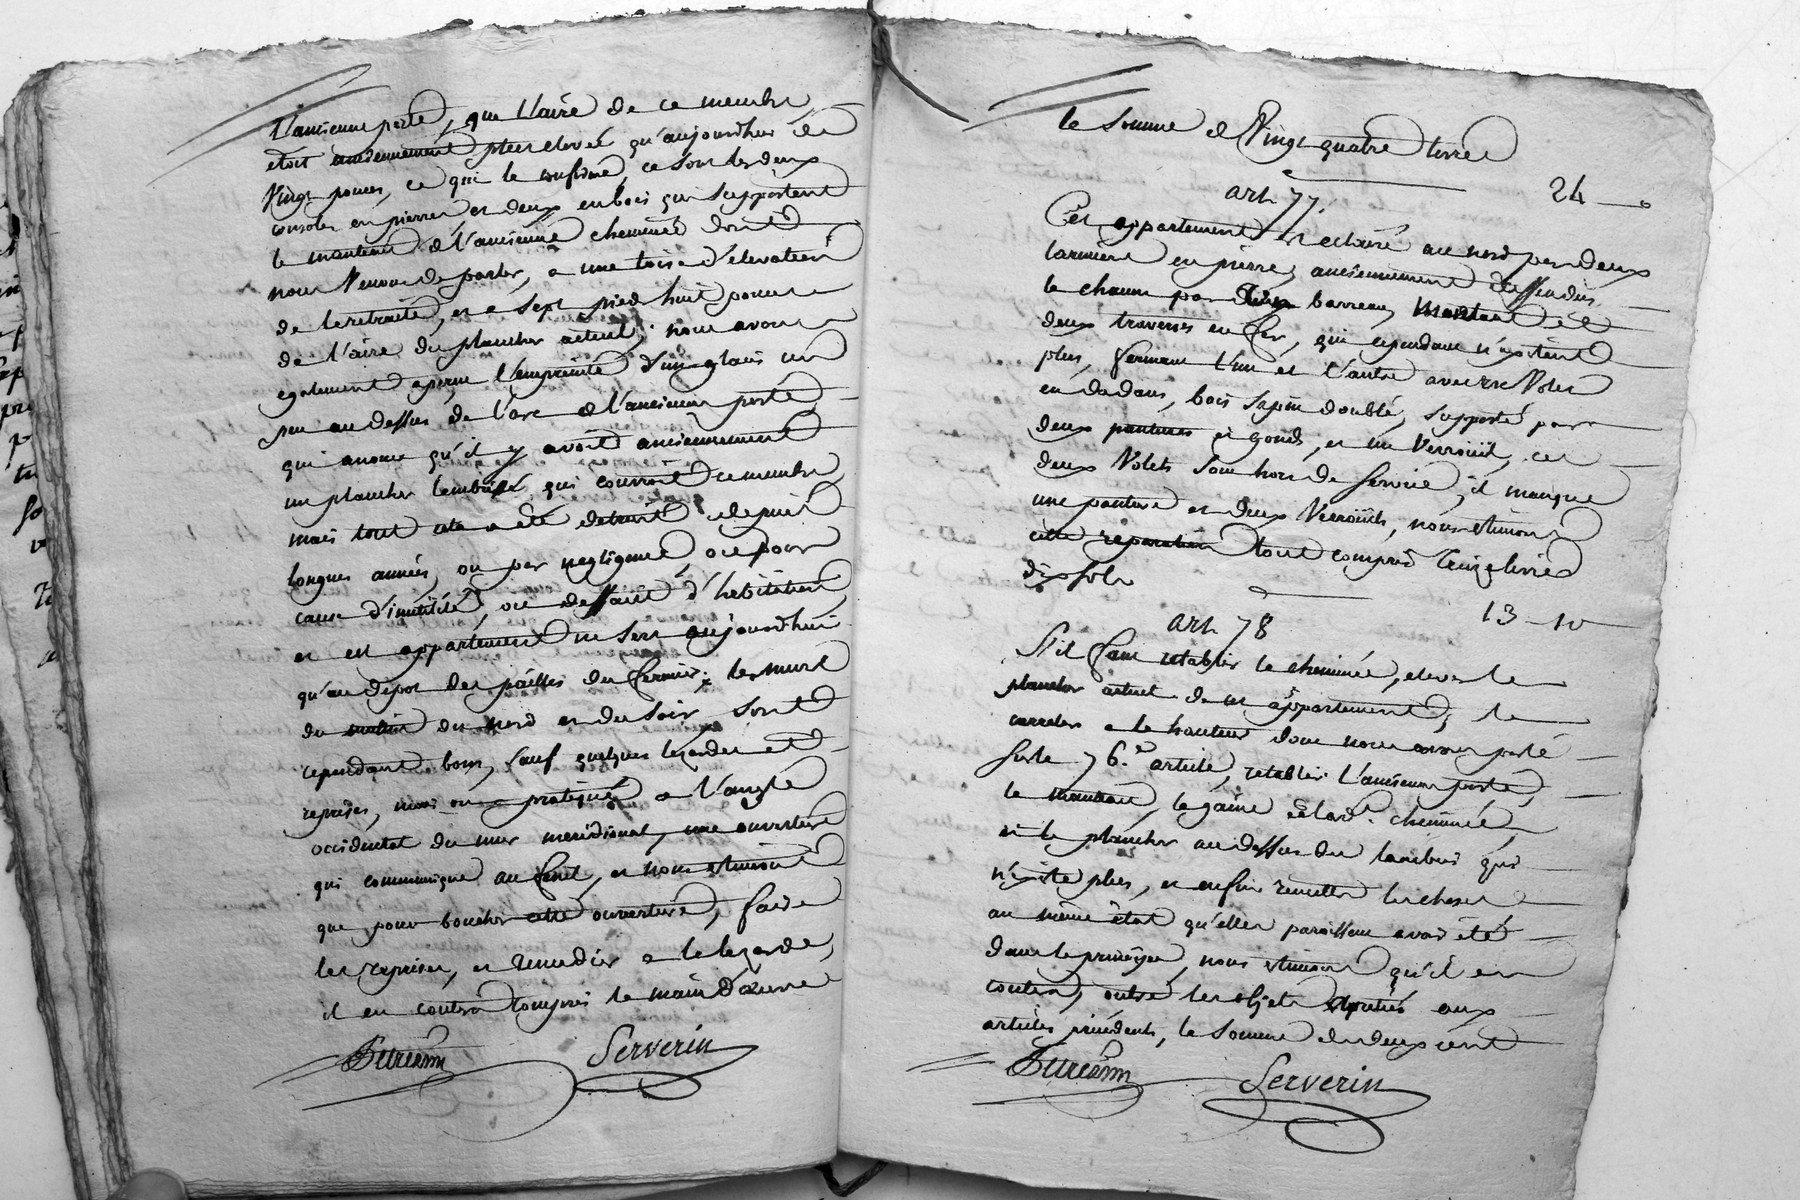 l'ancienne porte, que l'aire de ce membre
étoit anciennement plus elevée qu'aujourdhui de
Vingt pouces, ce qui le confirme, ce sont les deux
consoles en pierre, et deux en bois qui supportent
le manteau de l'ancienne cheminée dont
nous Venons de parler, a une toise d'élevation
de la retraite, et a sept pied huit pouces
de l'aire du plancher actuel; nous avons
egalement aperçu l'empreinte d'un glacis un
peu au dessus de l'arc de l'ancienne porte,
qui anonce qu'il y avoit anciennement
un plancher lambrissé qui couvroit ce membre
mais tout cela a été detruit depuis
longues années, ou par negligence, ou pour
cause d'inutilité, ou deffaut d'habitation
et cet appartement ne sert aujourdhui
qu'au depot des pailles du fermier; les murs
du matin du nord et du soir sont
cependant bons, sauf quelques lezardes et
reprises, mais on a pratiqué a l'angle
occidental du mur meridional, une ouverture
qui communique au fenil, et nous estimons
que pour boucher cette ouverture, faire
les reprises, et remedier a la lezarde,
il en coutera compris la main d'œuvre
Serverin
la somme de Vingt quatre livres
24 — o
art. 77.
Cet appartement est eclairé au nord par deux
larmiers en pierre, anciennement deffendus
le chacun par deux barreau, montant et
deux traverses en fer, qui cependant n'existent
plus, fermant l'un et l'autre avec un Volet
en dedans, bois sapin doublé, supporté par
deux pantures et gonds, et un Verrouil, ces
deux Volets sont hors de service, il manque
une panture et deux Verrouils, nous estimons
cette reparation tout compris Treize livres
dix sols
13 — 10
art. 78
S'il faut retablir la cheminée, elever le
plancher actuel de cet appartement, le
carreler a la hauteur dont nous avons parlé
sur le 76.e article, retablir l'ancienne porte,
le manteau, la gaine de lad.e cheminée,
et le plancher au dessus du lambris qui
n'existe plus, et enfin remettre les choses
au même état qu'elles paroissent avoir été
dans le principe, nous estimons qu'il en
coutera, outre les objets apretiés aux
articles précédents, la somme de deux cent
Serverin